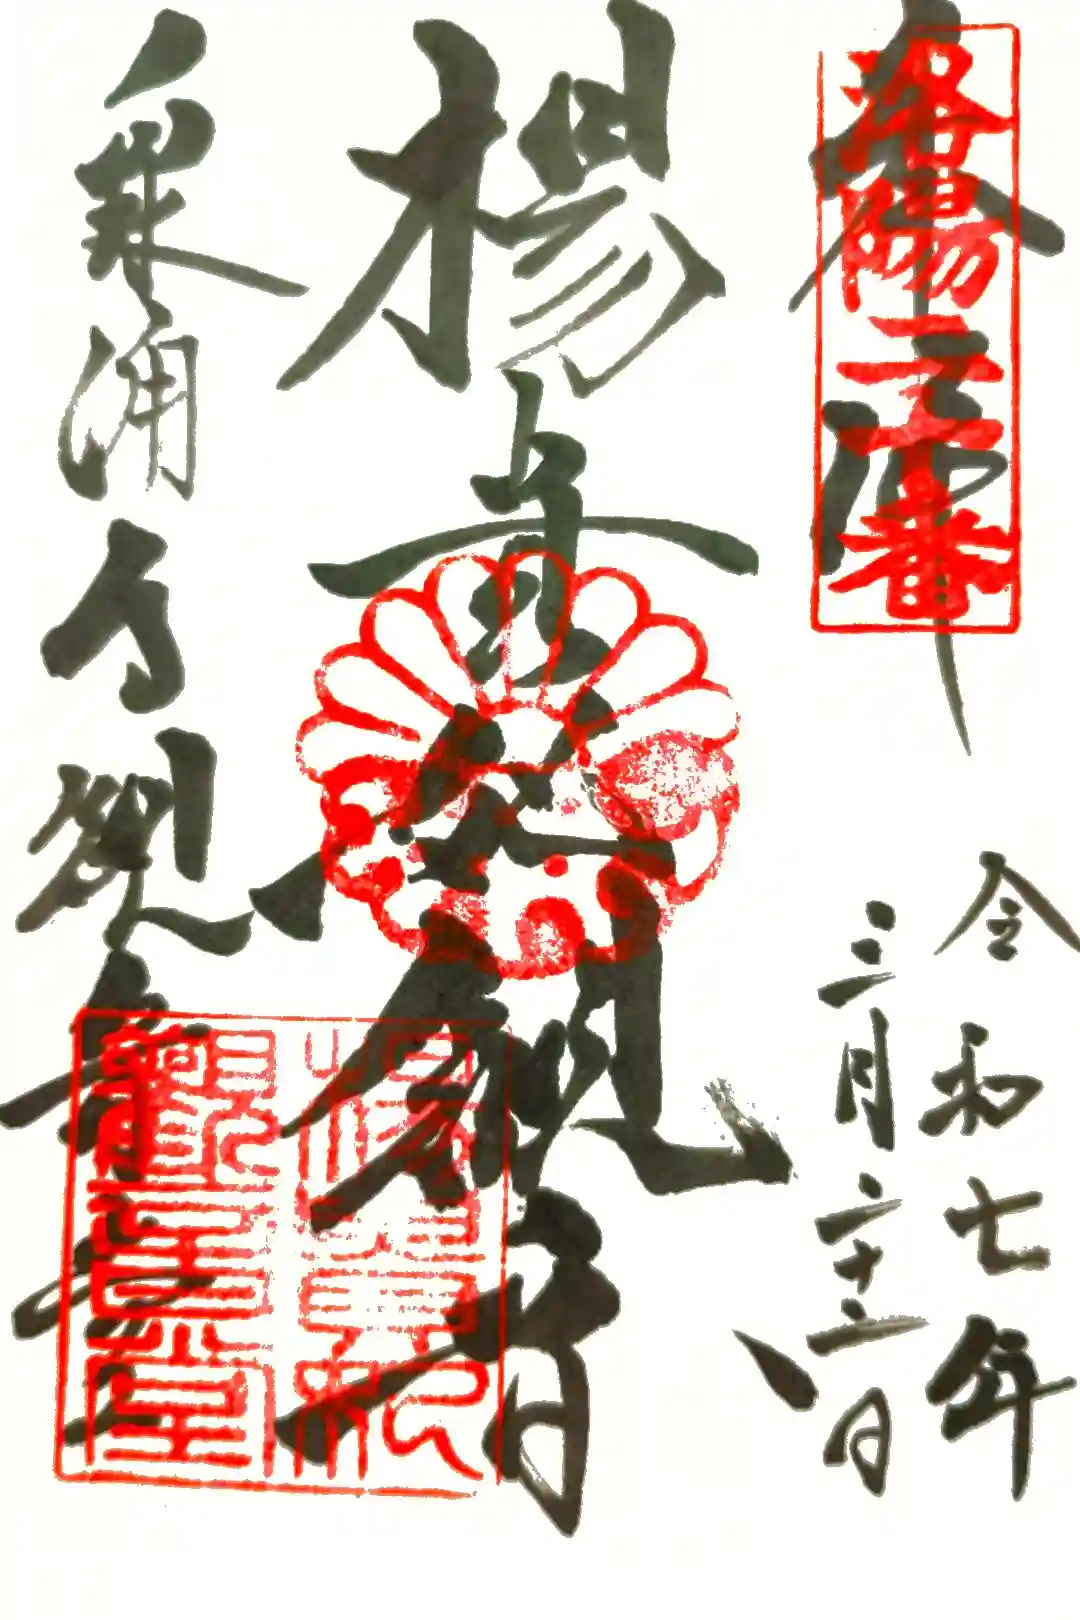 奉拝
洛陽二十番
令和七年
三月二十二日
楊貴妃観音
泉涌寺観音堂
楊貴妃
観音堂